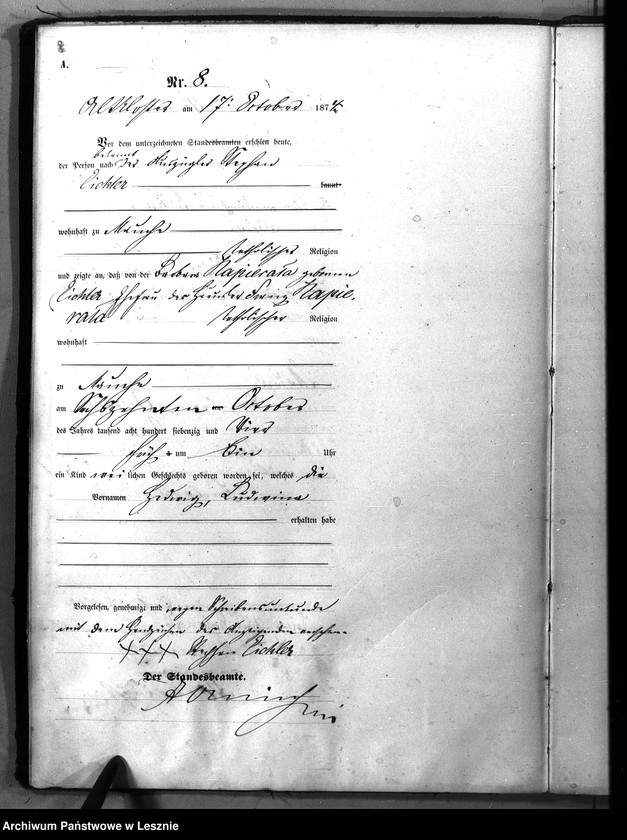 A.
Nr. 8.
Altkloster am 17. October 1874
Vor dem unterzeichneten Standesbeamten erschien heute,
bekannt
der Person nach der Stephan
Eichler kannt
wohnhaft zu Mauche
katholischer Religion
und zeigte an, daß von der Barbara Napierala geborene
Eichler Ehefrau des Franz Napie-
rala katholischer Religion
wohnhaft
zu Mauche
am Sechszehnten October
des Jahres tausend acht hundert siebenzig und Vier
früh um Ein Uhr
ein Kind weiblichen Geschlechts geboren worden sei, welches die
Vornamen Hedwig, Ludwina
erhalten habe
Vorgelesen, genehmigt und wegen Schreibensunkunde
mit dem Handzeichen des Anzeigenden versehen
+++ Stephan Eichler
Der Standesbeamte.
Archiwum Państwowe w Lesznie